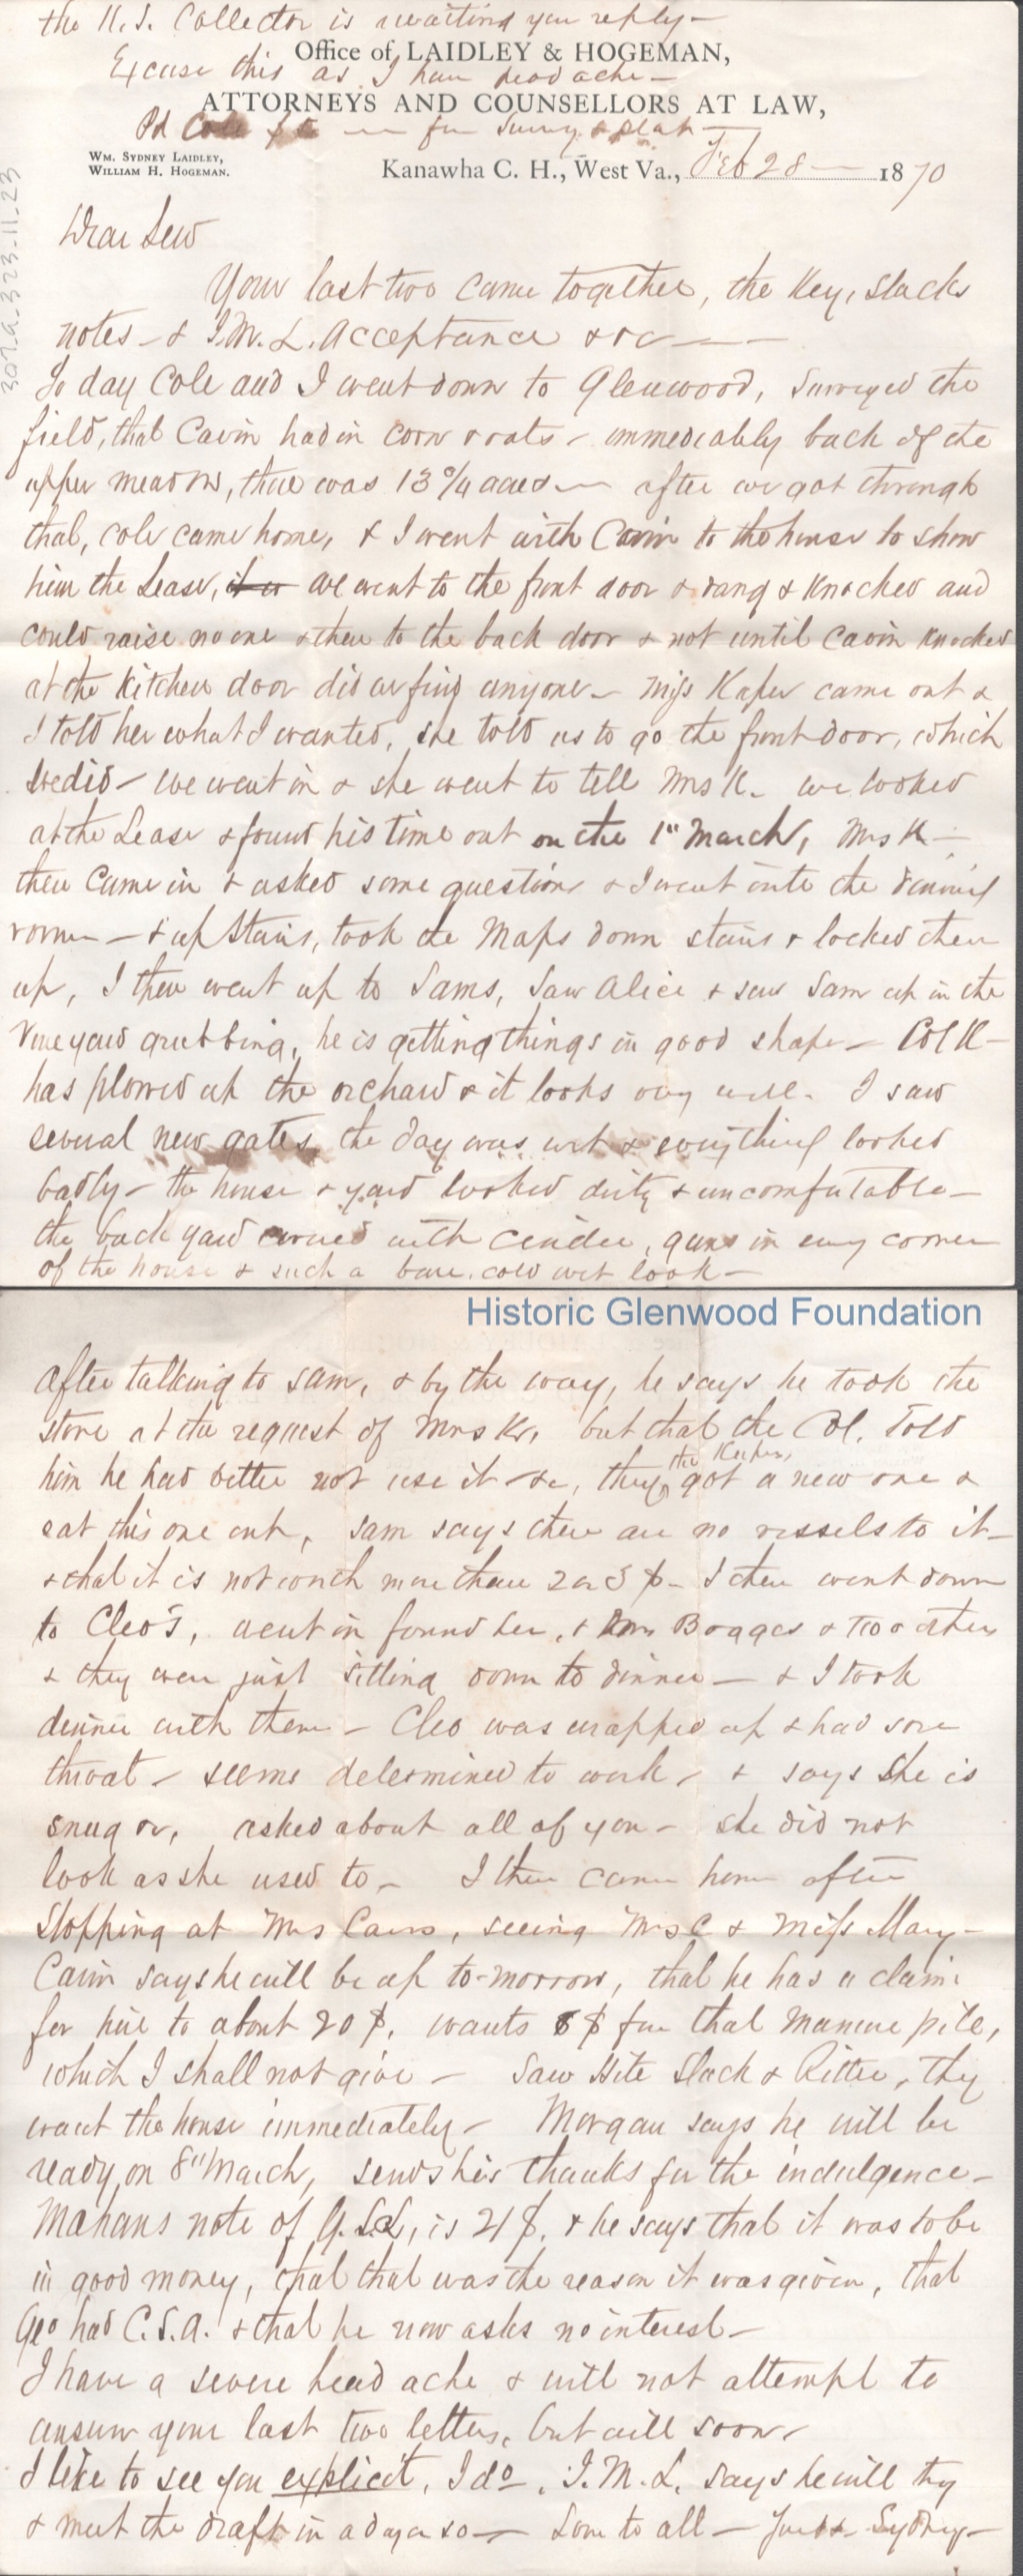 the U.S. Collector is awaiting your reply-
Office of LAIDLEY & HOGEMAN,
Excuse this as I have head ache-
ATTORNEYS AND COUNSELLORS AT LAW,
Pd Cole for survey & plat-
WM. SYDNEY LAIDLEY,
WILLIAM H. HOGEMAN.
Kanawha C. H., West Va., Feb 28 — 1870
307.a.323-11.23
Dear Lew
Your last two came together, the Key, Slacks
notes - & J.M.L. Acceptance &c —
To day Cole and I went down to Glenwood, surveyed the
field, that Cavin had in corn & oats - immediately back of the
upper meadow, there was 13 acres — after we got through
that, Cole came home, & I went with Cavin to the house to show
him the Lease, we went to the front door & rang & knocked and
could raise no one & then to the back door & not until Cavin knocked
at the Kitchen door did we find anyone - Miss Kafer came out &
I told her what I wanted, she told us to go the front door, which
we did - we went in & she went to tell Mrs K - we looked
at the Lease & found his time out on the 1" March, Mrs K -
then came in & asked some questions & I went into the dinning
room - & up stairs, took the Maps down stairs & locked them
up, I then went up to Sams, saw Alice & saw Sam up in the
vineyard grubbing, he is getting things in good shape - Col K -
has plowed up the orchard & it looks very well. I saw
several new gates, the day was wet & everything looked
badly - the house & yard looked dirty & uncomfortable -
the back yard covered with cinder, guns in every corner
of the house & such a bare, cold wet look -
Historic Glenwood Foundation
After talking to Sam, & by the way, he says he took the
stove at the request of Mrs K, but that the Col. told
him he had better not use it &c, they, the Kafers, got a new one &
eat this one out, Sam says there are no vessels to it -
& that it is not worth more than 2 or 3 $ - I then went down
to Cleo's, went in found her, & Boggs & two others
& they were just sitting down to dinner - & I took
dinner with them - Cleo was wrapped up & had sore
throat - seems determined to work, & says she is
snug, asked about all of you - she did not
look as she used to - I then came home after
stopping at Mrs Cains, seeing Mrs C & Miss Mary -
Cavin says he will be up to-morrow, that he has a claim
for to about 20 $, wants 8 $ for that manure pile,
which I shall not give - Saw Hite Slack & Ritter, they
want the house immediately - Morgan says he will be
ready on 8" March, sends his thanks for the indulgence -
Mahans note of G.S.L, is 21 $, & he says that it was to be
in good money, that that was the reason it was given, that
Geo had C.S.A. & that he now asks no interest -
I have a severe head ache & will not attempt to
answer your last two letters, but will soon -
I like to see you explicit, I do. J.M.L. says he will try
& meet the draft in a day or so - Love to all - Sydney -